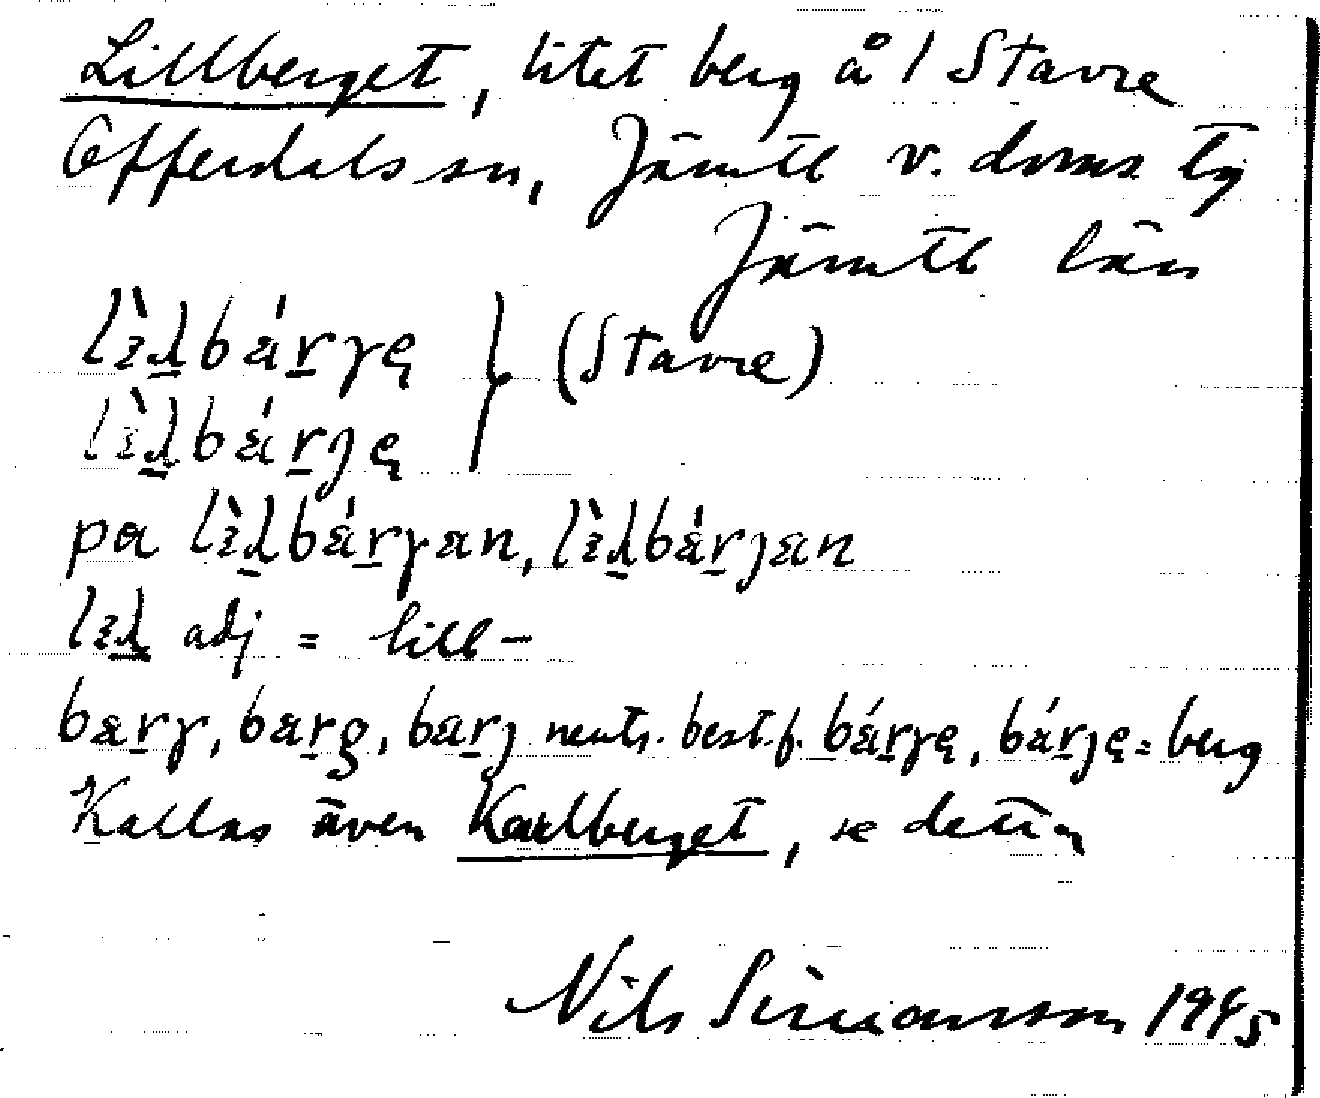 Lillberget, litet berg å 1 Stavre
Offerdals sn, Jämtl v. doms tg
Jämtl län
lìlbárγę } (Stavre)
lìlbárȷę
pa lìlbárγan, lìlbárȷan
lil adj = lill-
barγ, barg, barȷ neutr. best.f. bárγę, bárȷę = berg
Kallas även Karlberget, se detta
Nils Simonsson 1945